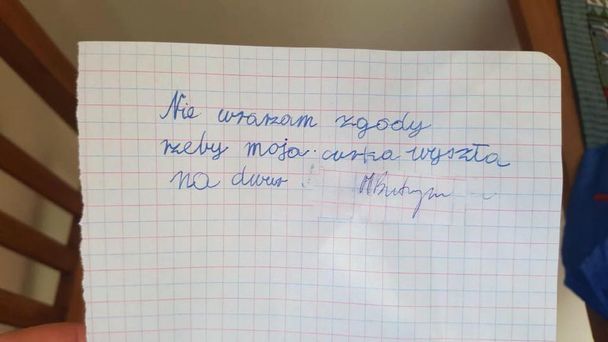 Nie wrarzam zgody
rzeby moja curka wyszła
na dwur !